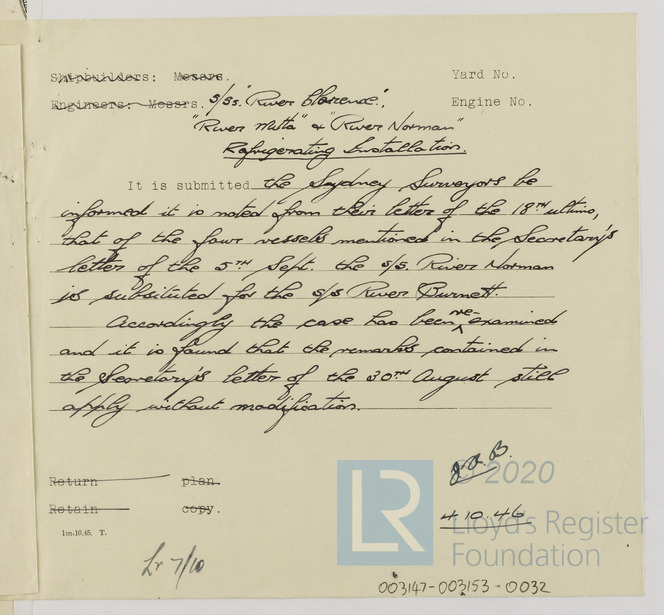 Shipbuilders: Messrs. Yard No.
Engineers: Messrs. s/ss. "River Clarence", Engine No.
"River Mitta" & "River Norman"
Refrigerating Installation.
It is submitted the Saydney Surveyors be
informed it is noted from their letter of the 18TH ultimo,
that of the four vessels mentioned in the Secretary's
letter of the 5TH Sept. the s/s. River Norman
is subsituted for the s/s River Burnett.
Accordingly the case has been re-examined
and it is found that the remarks contained in
the Secretary's letter of the 30TH August still
apply without modification.
Return plan.
Retain copy.
J.A.B.
4.10.46
1m-10,45. T.
Lr 7/10
LR
© 2020
Lloyd's Register
Foundation
003147-003153-0032